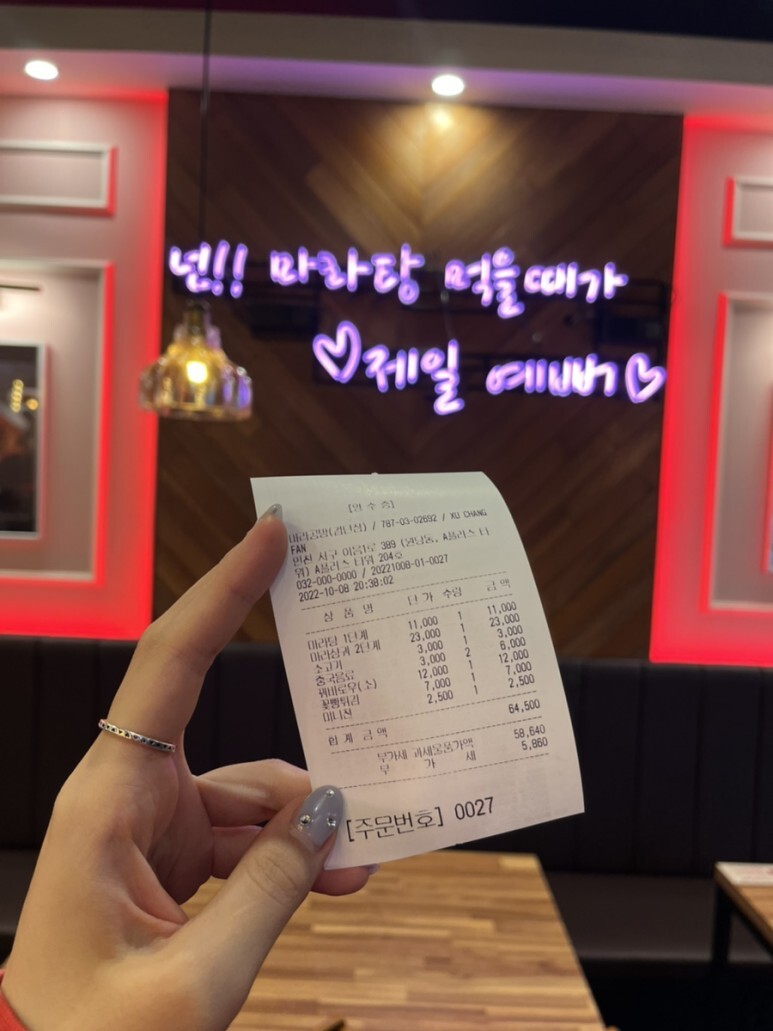 넌!! 마라탕 먹을때가
♡제일 예뻐♡
[영 수 증]
마라공방(검단점) / 787-03-02692 / XU CHANG
FAN
인천 서구 이음1로 389 (원당동, A플러스 타
워) A플러스 타워 204호
032-000-0000 / 20221008-01-0027
2022-10-08 20:38:02
상 품 명 단 가 수량 금 액
마라탕 1단계 11,000 1 11,000
마라샹궈 2단계 23,000 1 23,000
소고기 3,000 1 3,000
중국음료 3,000 2 6,000
꿔바로우(소) 12,000 1 12,000
꽃빵튀김 7,000 1 7,000
미니전 2,500 1 2,500
합 계 금 액 64,500
부가세 과세물품가액 58,640
부 가 세 5,860
[주문번호] 0027